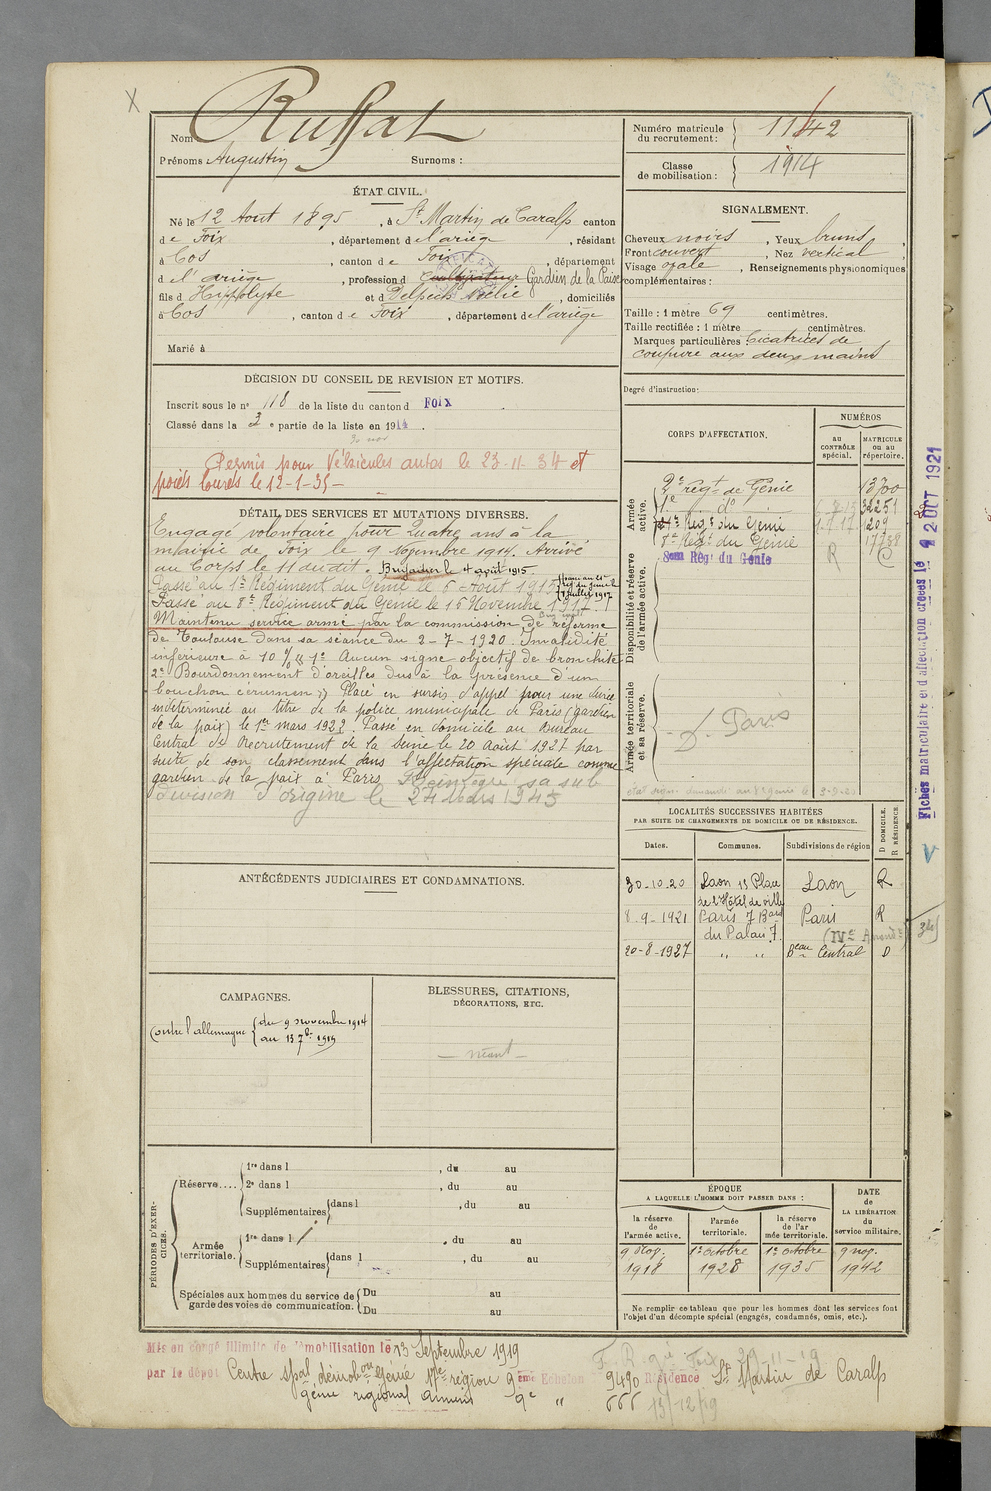 X
Nom Ruffat
Prénoms Augustin Surnoms :
Numéro matricule du recrutement : 1142
Classe de mobilisation : 1914
ÉTAT CIVIL.
Né le 12 Aout 1895, à St Martin de Caralp canton
de Foix, département de l'ariège, résidant
à Cos, canton de Foix, département
de l'ariège, profession d Cultivateur Gardien de la Paix
fils d Hippolyte et d Delpech Noélie, domiciliés
à Cos, canton de Foix, département de l'ariège
Marié à
SIGNALEMENT.
Cheveux noirs, Yeux bruns,
Front couvert, Nez vertical,
Visage ovale, Renseignements physionomiques
complémentaires :
Taille : 1 mètre 69 centimètres.
Taille rectifiée : 1 mètre centimètres.
Marques particulières : Cicatrices de
coupure aux deux mains
Degré d'instruction :
DÉCISION DU CONSEIL DE REVISION ET MOTIFS.
Inscrit sous le n° 118 de la liste du canton d FOIX
Classé dans la 3e partie de la liste en 1914.
Permis pour Véhicules autos le 23-11-34 et
poids lourds le 12-1-35-
DÉTAIL DES SERVICES ET MUTATIONS DIVERSES.
Engagé volontaire pour Quatre ans à la
mairie de Foix le 9 Novembre 1914. Arrivé
au Corps le 11 du dit. Brigadier le 4 août 1915.
Passé au 1er Régiment du Génie le 6 Août 1915
Passé au 8e Régiment du Génie le 15 Novembre 1917
Maintenu service armé par la commission de réforme
de Toulouse dans sa séance du 2-7-1920. Invalidité
inférieure à 10 % "1° Aucun signe objectif de bronchite
2° Bourdonnement d'oreilles dus à la présence d'un
bouchon cérumen". Placé en sursis d'appel pour une durée
indéterminée au titre de la police municipale de Paris (gardien
de la paix) le 1er mars 1922. Passé en domicile au Bureau
Central de Recrutement de la Seine le 20 Août 1927 par
suite de son classement dans l'affectation spéciale comme
gardien de la paix à Paris. Réintègre sa sub
division d'origine le 24 Mars 1943
CORPS D'AFFECTATION.
NUMÉROS
AU CONTRÔLE spécial.
MATRICULE ou au répertoire.
Armée active.
2e régt de Génie 13700
1er do 32251
1er Régt du Génie 1209
8e Régt du Génie 17738
8eme Rég. du Génie R
Disponibilité et réserve de l'armée active.
Armée territoriale et sa réserve.
D. Paris
Fiches matriculaire et d'affectation créées le 2 OCT 1921
LOCALITÉS SUCCESSIVES HABITÉES
PAR SUITE DE CHANGEMENTS DE DOMICILE OU DE RÉSIDENCE.
Dates. Communes. Subdivisions de région D DOMICILE. R RÉSIDENCE.
30-10-20 Laon 13 Place Laon R
de l'Hôtel de ville
8-9-1921 Paris 7 Bard Paris R
du Palais 7.
20-8-1927 " " Beau Central D
ANTÉCÉDENTS JUDICIAIRES ET CONDAMNATIONS.
CAMPAGNES.
Contre l'allemagne du 9 novembre 1914
au 13 7bre 1919
BLESSURES, CITATIONS,
DÉCORATIONS, ETC.
— néant —
PÉRIODES D'EXERCICES.
Réserve....
1re dans l , du au
2e dans l , du au
Supplémentaires dans l , du au
Armée territoriale.
1re dans l , du au
Supplémentaires dans l , du au
Spéciales aux hommes du service de garde des voies de communication.
Du au
Du au
ÉPOQUE
A LAQUELLE L'HOMME DOIT PASSER DANS :
DATE de LA LIBÉRATION du service militaire.
la réserve de l'armée active.
l'armée territoriale.
la réserve de l'armée territoriale.
9 Nov. 1918
1er octobre 1928
1er octobre 1935
9 nov. 1942
Ne remplir ce tableau que pour les hommes dont les services font
l'objet d'un décompte spécial (engagés, condamnés, omis, etc.).
Mis en congé illimité de démobilisation le 13 Septembre 1919
par le dépôt Centre spal démobon génie 17e région 9ème Echelon 9490 Résidence St Martin de Caralp
génie régional Amiens 9e " 666
13/12/19